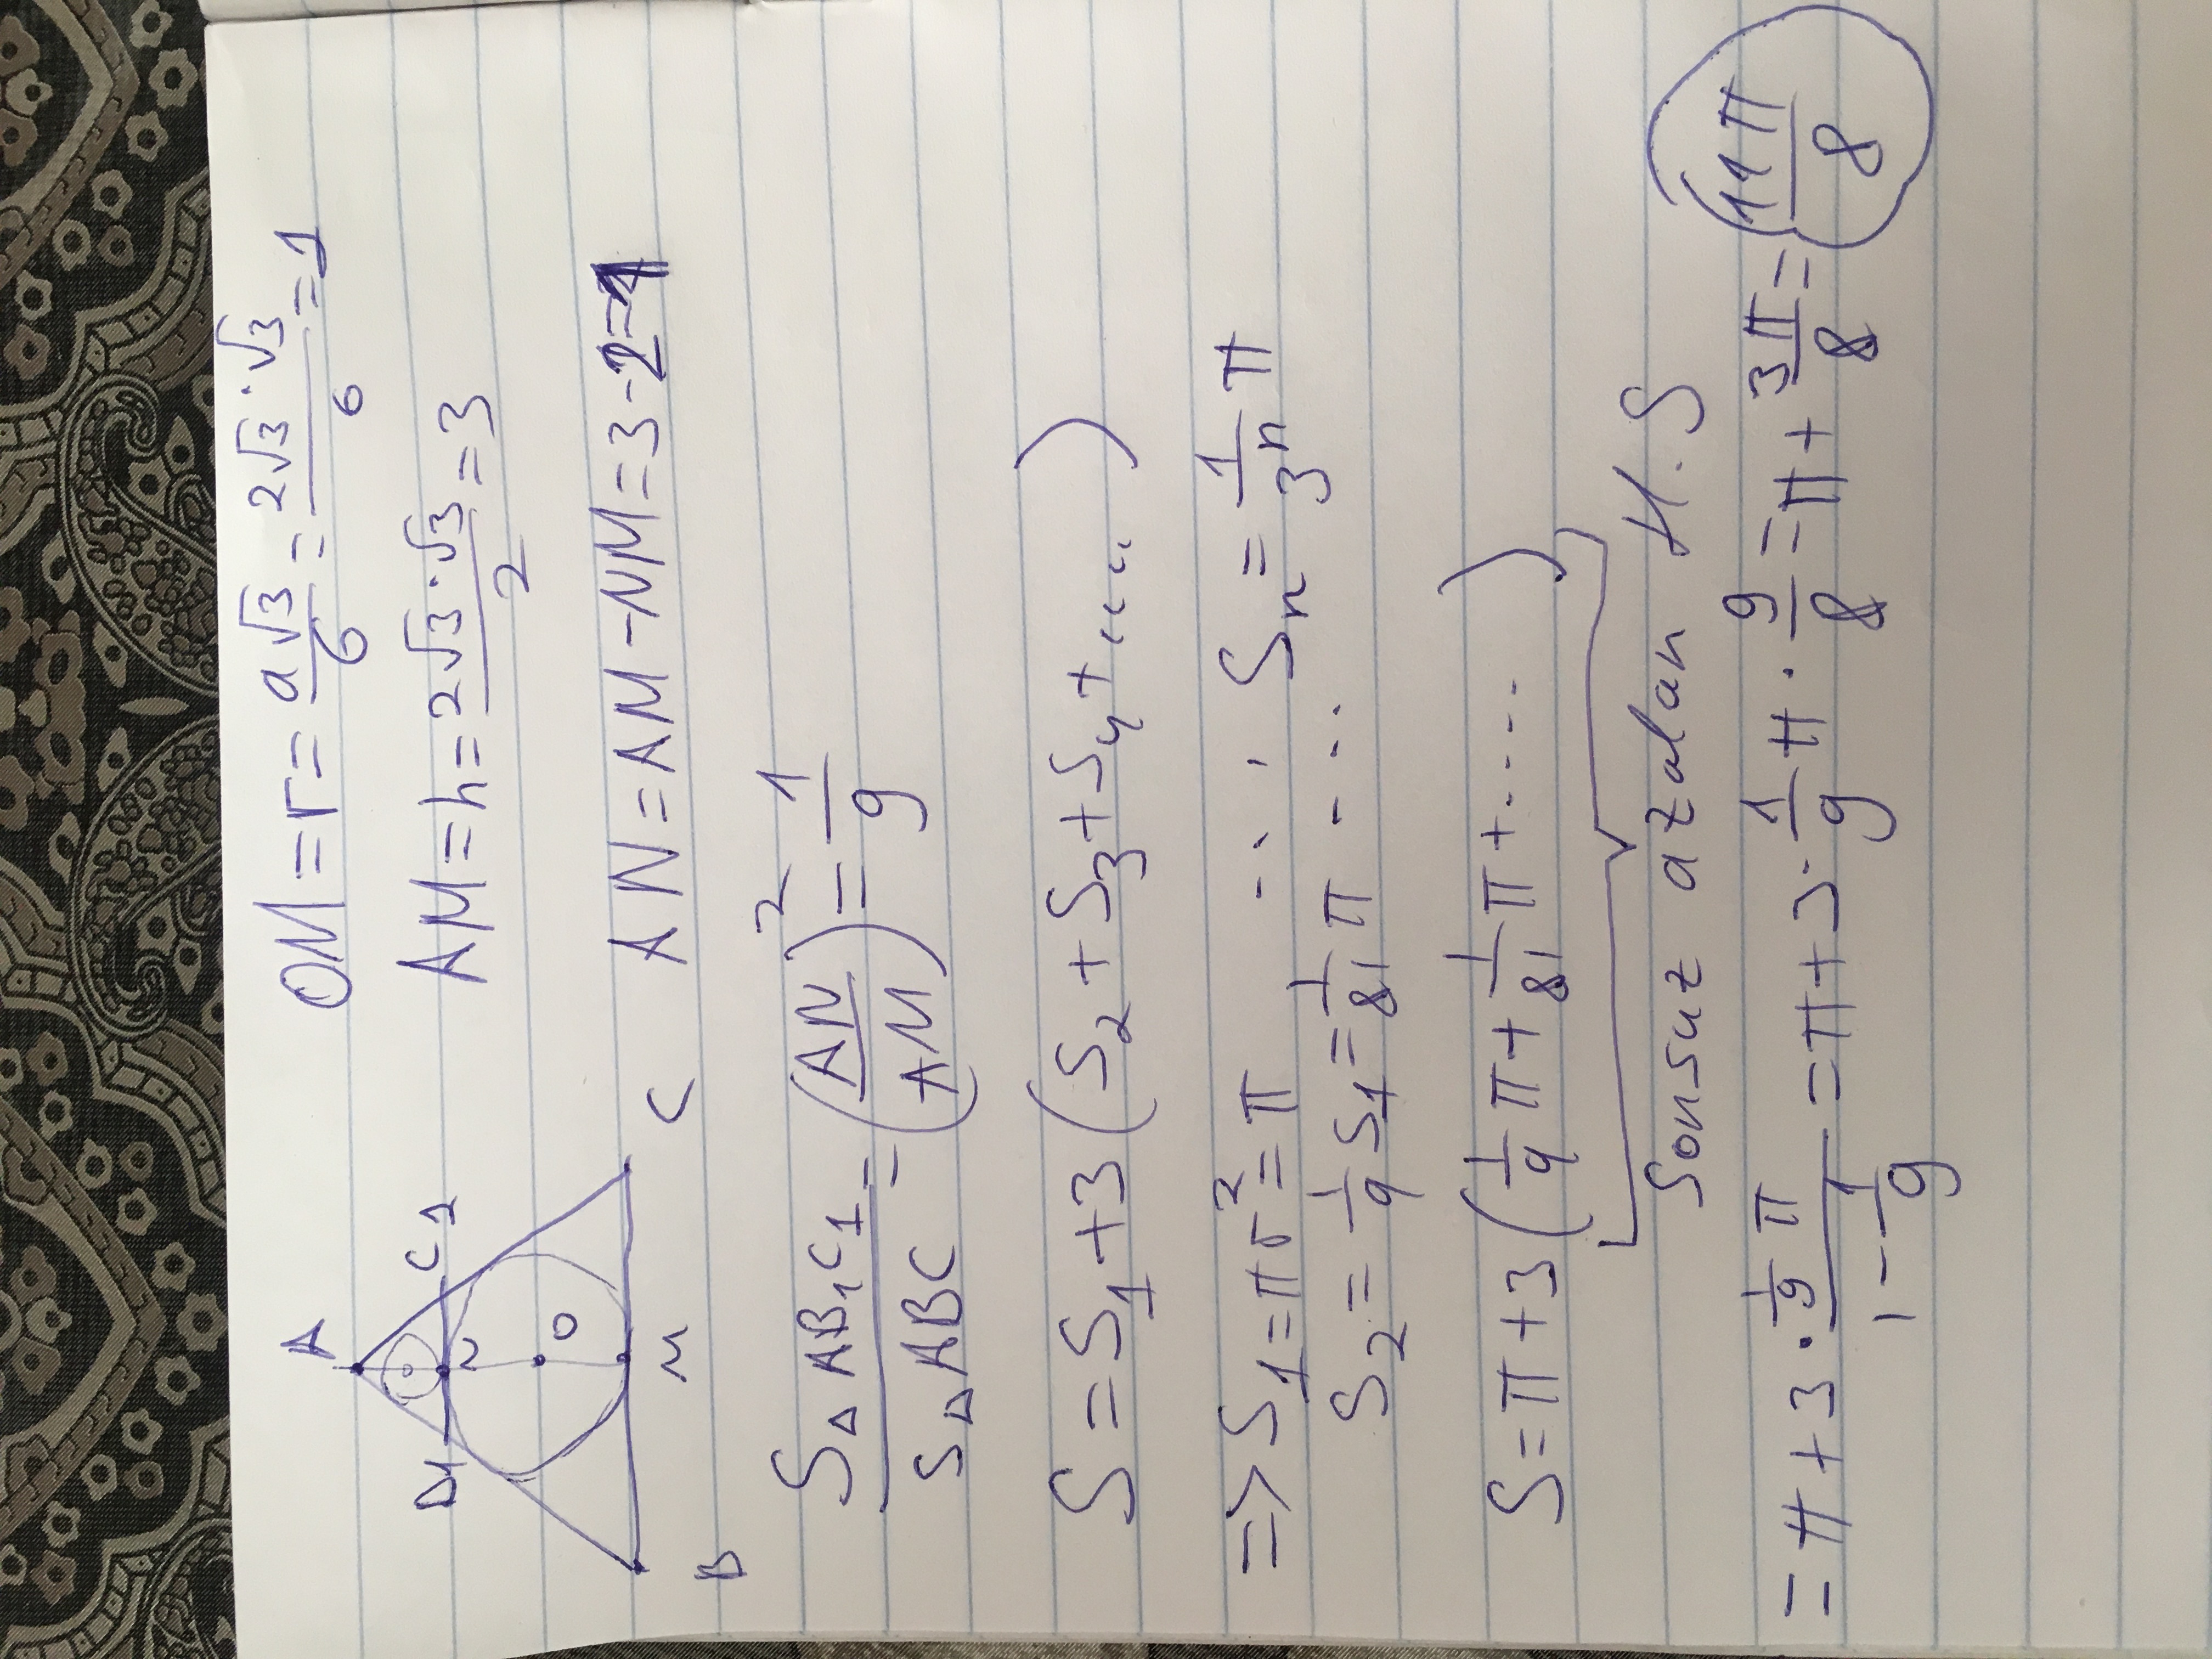 A
B1 N C1
O
B M C
OM = r = a√3/6 = 2√3·√3/6 = 1
AM = h = 2√3·√3/2 = 3
AN = AM - NM = 3 - 2 = 1
S△AB1C1/S△ABC = (AN/AM)² = 1/9
S = S1 + 3(S2 + S3 + S4 + ....)
=> S1 = πr² = π - . . . Sn = 1/3ⁿ π
S2 = 1/9 S1 = 1/81 π - - - .
S = π + 3(1/9 π + 1/81 π + .....)
Sonsuz azalan H.S
= π + 3 · (1/9 π)/(1 - 1/9) = π + 3 · 1/9 π · 9/8 = π + 3π/8 = 11π/8